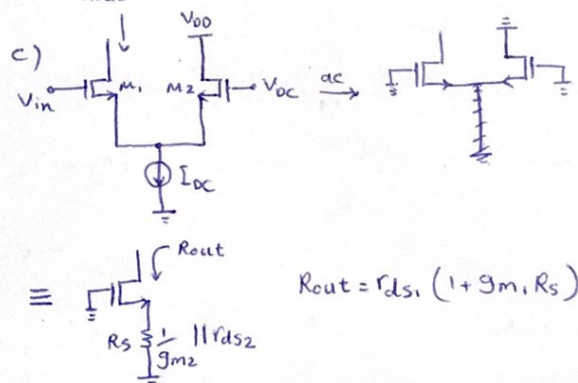 c)
V_DD
V_in
M₁
M₂
V_DC
ac
I_DC
≡
Rout
Rs
1/gm2 || rds2
Rout = rds₁ (1 + gm₁ Rs)